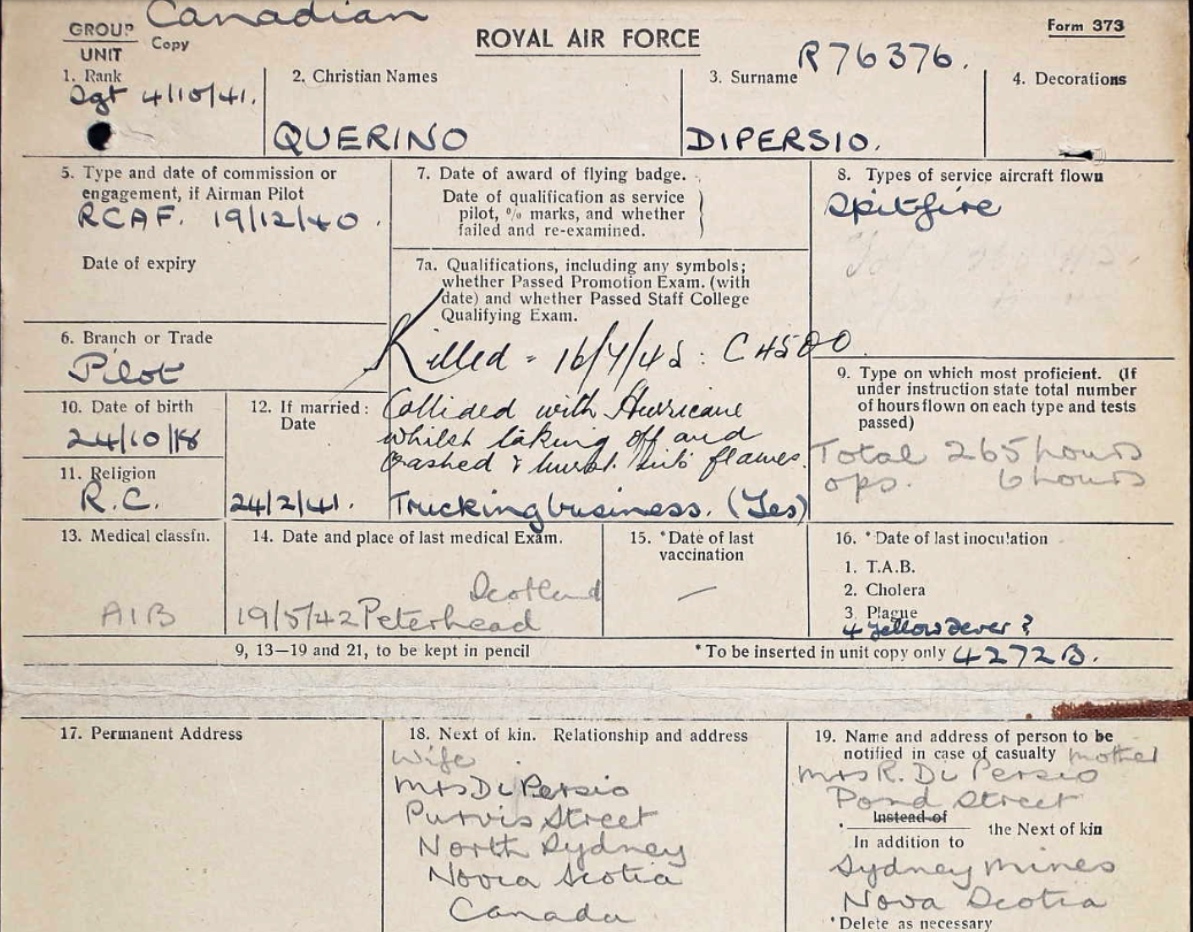 Canadian
GROUP
UNIT
Copy
ROYAL AIR FORCE
Form 373
R76376.
1. Rank
Sgt 4/10/41.
2. Christian Names
QUERINO
3. Surname
DIPERSIO.
4. Decorations
5. Type and date of commission or
engagement, if Airman Pilot
RCAF. 19/12/40.
Date of expiry
7. Date of award of flying badge.
Date of qualification as service
pilot, % marks, and whether
failed and re-examined.
7a. Qualifications, including any symbols;
whether Passed Promotion Exam. (with
date) and whether Passed Staff College
Qualifying Exam.
8. Types of service aircraft flown
Spitfire
6. Branch or Trade
Pilot
Killed - 16/7/42 : C4500
9. Type on which most proficient. (If
under instruction state total number
of hours flown on each type and tests
passed)
Total 265 hours
ops. 6 hours
10. Date of birth
24/10/18
11. Religion
R.C.
12. If married:
Date
24/2/41.
Collided with Hurricane
whilst taking off and
crashed & burst into flames.
Trucking business. (Yes)
13. Medical classfn.
A1B
14. Date and place of last medical Exam.
Scotland
19/5/42 Peterhead
15. *Date of last
vaccination
—
16. *Date of last inoculation
1. T.A.B.
2. Cholera
3. Plague
4 Yellow Fever ?
9, 13—19 and 21, to be kept in pencil
*To be inserted in unit copy only 4272B.
17. Permanent Address
18. Next of kin. Relationship and address
Wife
Mrs Di Persio
Purvis Street
North Sydney
Novia Scotia
Canada
19. Name and address of person to be
notified in case of casualty mother
Mrs R. Di Persio
Pond Street
* Instead of
In addition to
the Next of kin
Sydney Mines
Nova Scotia
*Delete as necessary